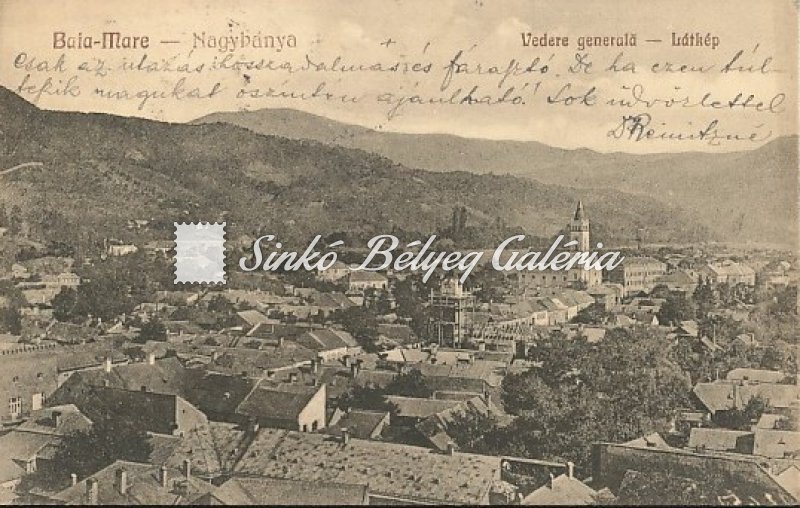 Baia-Mare — Nagybánya
Vedere generală — Látkép
Csak az utazás hosszadalmas és fárasztó. De ha ezen túl-
teszik magukat őszintén ajánlható! Sok üdvözlettel
Sinkó Bélyeg Galéria